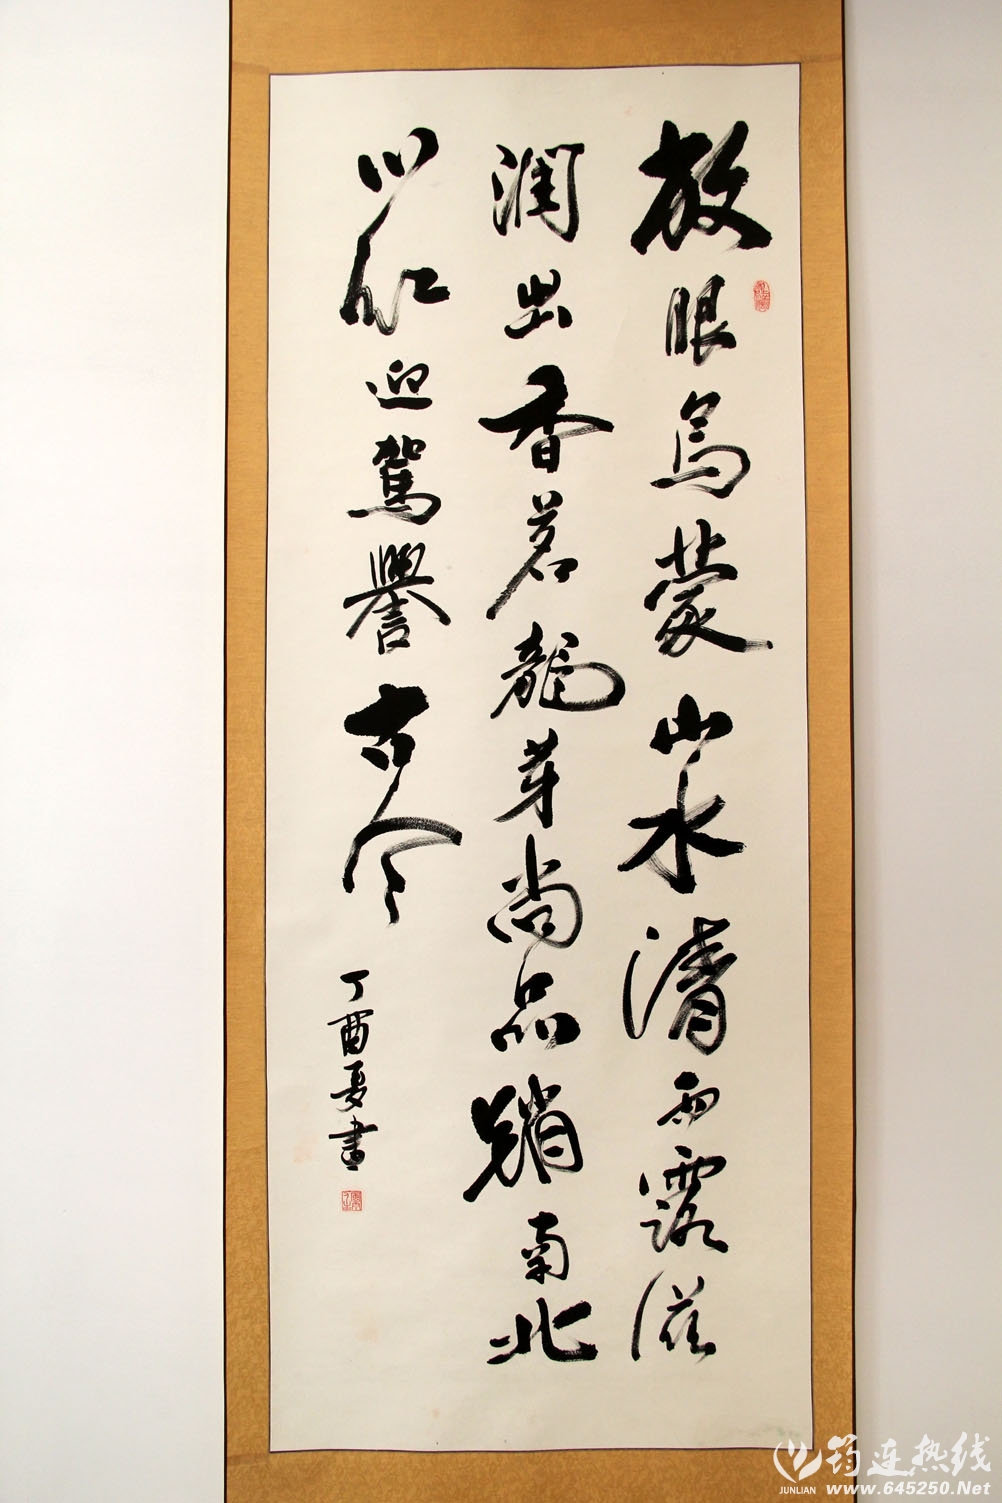 放眼烏蒙山水清雨露滋
潤出香茗龍芽尚品銷南北
川紅迎駕譽古今
丁酉夏書
筠连热线
JUNLIAN
www.645250.Net